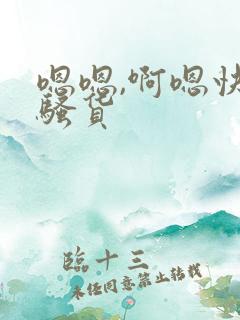 嗯嗯,啊嗯快
骚货
臨十三
未经同意禁止转载